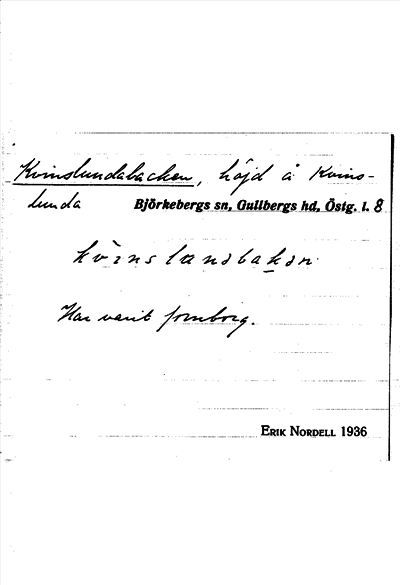 Kvinslundabacken, höjd å Kvins-
lunda Björkebergs sn, Gullbergs hd, Östg. l. 8
Har varit fornborg.
ERIK NORDELL 1936